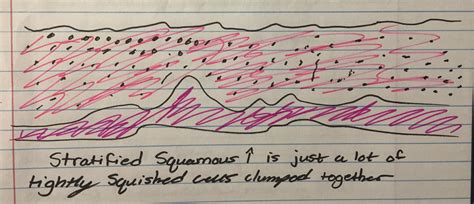 Stratified Squamous ↑ is just a lot of
tightly squished cells clumpod together